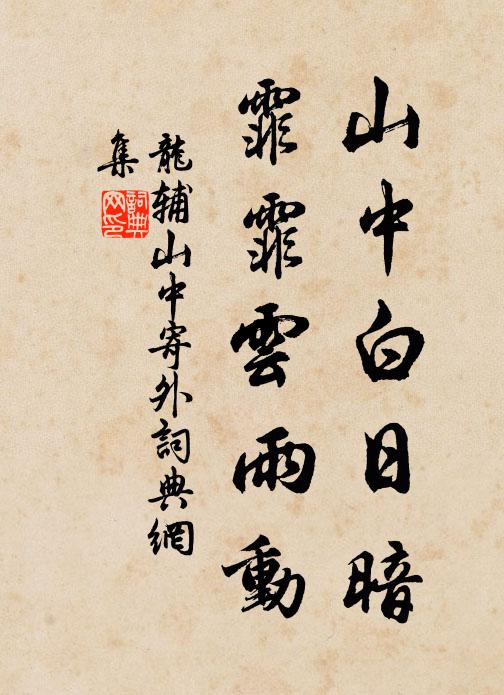 山中白日暗
霏霏雲雨動
龍輔山中寄外詞典網
集
詞典網印